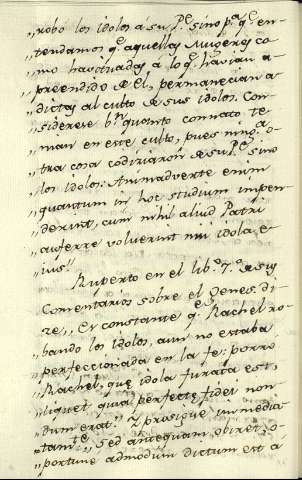 „robó los idolos á su Pe. sino pa. qe. en-
„tendamos qe. aquellas Mugeres co-
„mo havituadas a lo qe. havian a-
„prendido de El, permanecian a-
„dictas al culto de sus idolos. Con-
„siderese bn. quanto connato te-
„nian en este culto, pues ninga. o-
„tra cosa codiciaron de su Pe. sino
„los idolos: Animadverte enim
„quantum in hoc studium impen-
„derint, cum nihil aliud Patri
„auferre voluerint nisi idola e-
„ius.
Ruperto en el libo. 7o. de sus
Comentarios sobre el Genes. di-
ce, „Es constante qe. Rachel ro-
„bando los idolos, aun no estaba
„perfeccionada en la fe: porro
„Rachel, quę idola furata est,
„liquet quia perfectę fidei non-
„dum erat." Y prosigue inmedia-
„tamte. „Sed antequam obiret, o-
„portune admodum dictum est á